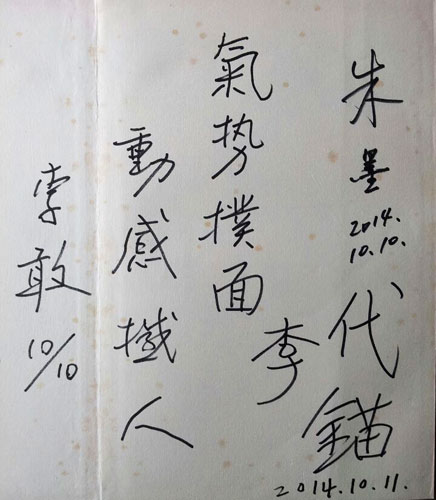 朱墨
2014.
10.10.
氣势撲面
動感攕人
李敢
10/10
李代錨
2014.10.11.